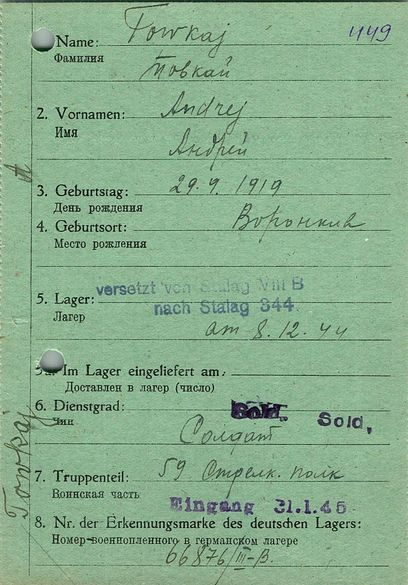 Towkaj 449
Name:
Фамилия Товкай
2. Vornamen: Andrej
Имя
Андрей
3. Geburtstag: 29.9.1919
День рождения
4. Geburtsort: Воронкив
Место рождения
versetzt von Stalag VIII B
5. Lager: nach Stalag 344.
Лагер am 8.12.44
5a. Im Lager eingeliefert am:
Доставлен в лагер (число)
6. Dienstgrad: Sold. Sold.
Чин
Солдат
7. Truppenteil: 59 Стрелк. полк
Воинская часть
Eingang 31.1.45
8. Nr. der Erkennungsmarke des deutschen Lagers:
Номер военнопленного в германском лагере
66876/III-B.
Towkaj